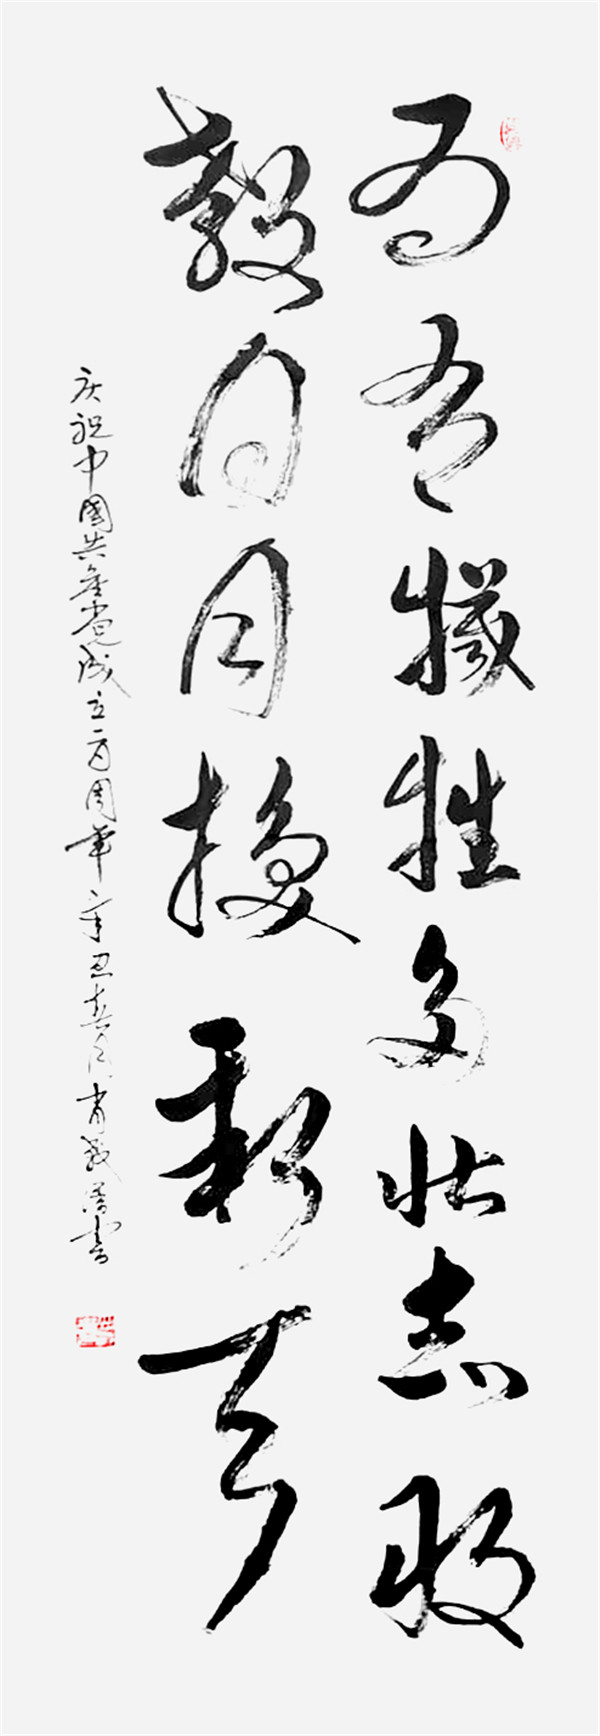 为有牺牲多壮志敢
教日月换新天
庆祝中国共产党成立一百周年辛丑书